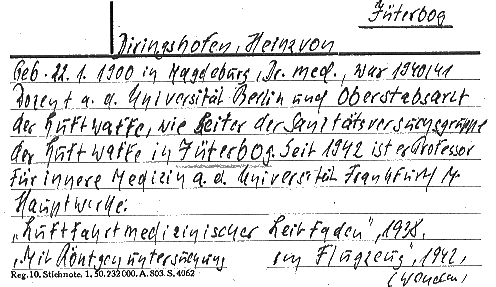 Jüterbog
Diringshofen, Heinz von
Geb. 22.1.1900 in Magdeburg, Dr. med., war 1940/41
Dozent a. d. Universität Berlin und Oberstabsarzt
der Luftwaffe, wie Leiter der Sanitätsversuchsgruppe
der Luftwaffe in Jüterbog. Seit 1942 ist er Professor
für innere Medizin a. d. Universität Frankfurt M.
Hauptwerke:
„Luftfahrtmedizinischer Leitfaden", 1938,
„Mit Röntgenuntersuchung im Flugzeug", 1942,
Reg. 10. Stichnote. 1. 50. 232000. A. 803. S. 4062
(wenden)